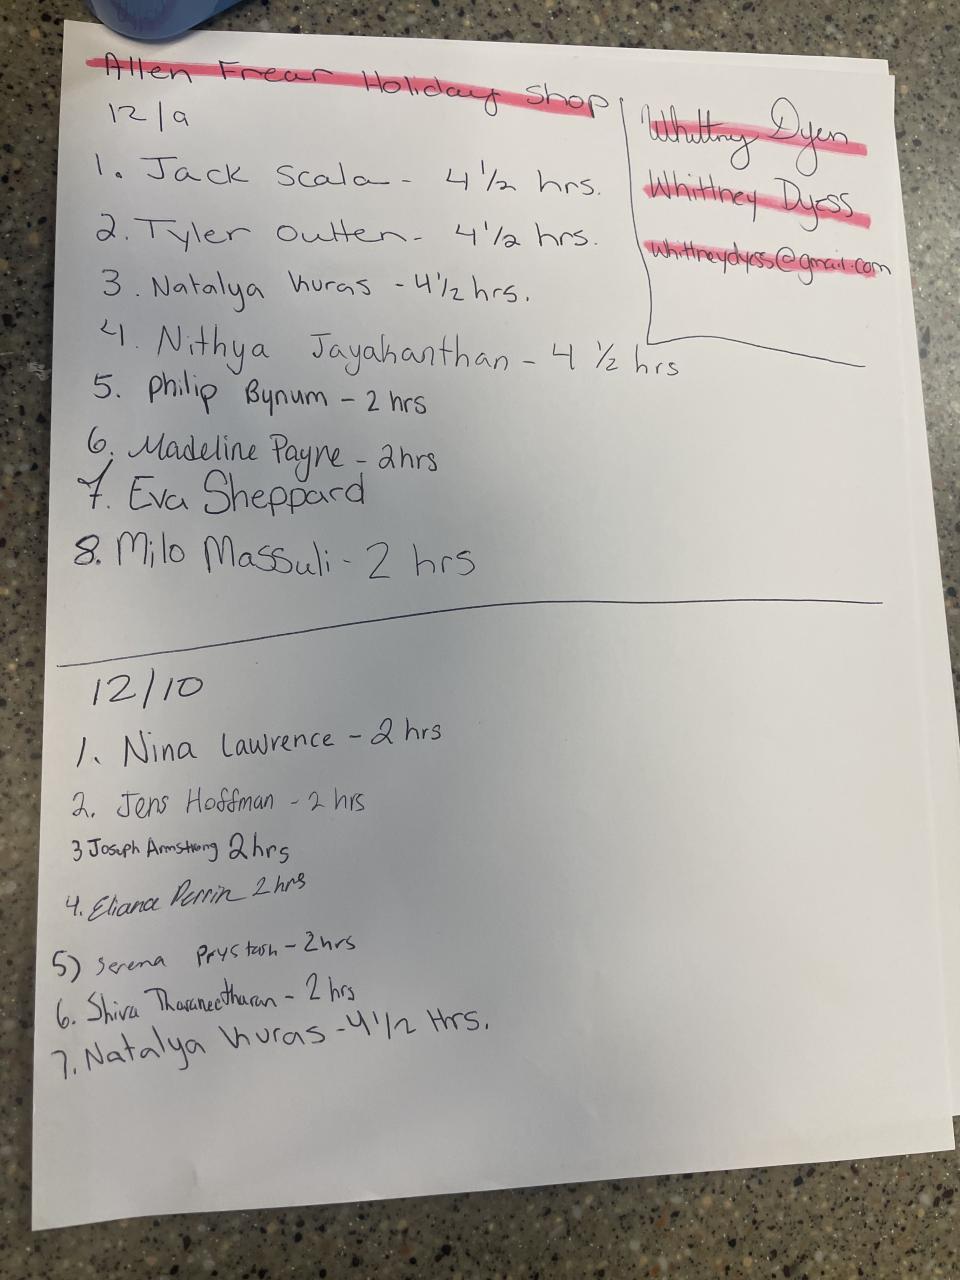 Allen Frear Holiday Shop
12/9
1. Jack Scala - 4 1/2 hrs.
2. Tyler Outten - 4 1/2 hrs.
3. Natalya Kuras - 4 1/2 hrs.
4. Nithya Jayakanthan - 4 1/2 hrs
5. Philip Bynum - 2 hrs
6. Madeline Payne - 2 hrs
7. Eva Sheppard
8. Milo Massuli - 2 hrs
Whittney
Whittney Dycss
whittneydycss@gmail.com
12/10
1. Nina Lawrence - 2 hrs
2. Jens Hoffman - 2 hrs
3 Joseph Armstrong 2 hrs
4. Eliana Perrin 2 hrs
5) Serena Prystash - 2 hrs
6. Shiva Tharaneetharan - 2 hrs
7. Natalya Kuras - 4 1/2 Hrs.